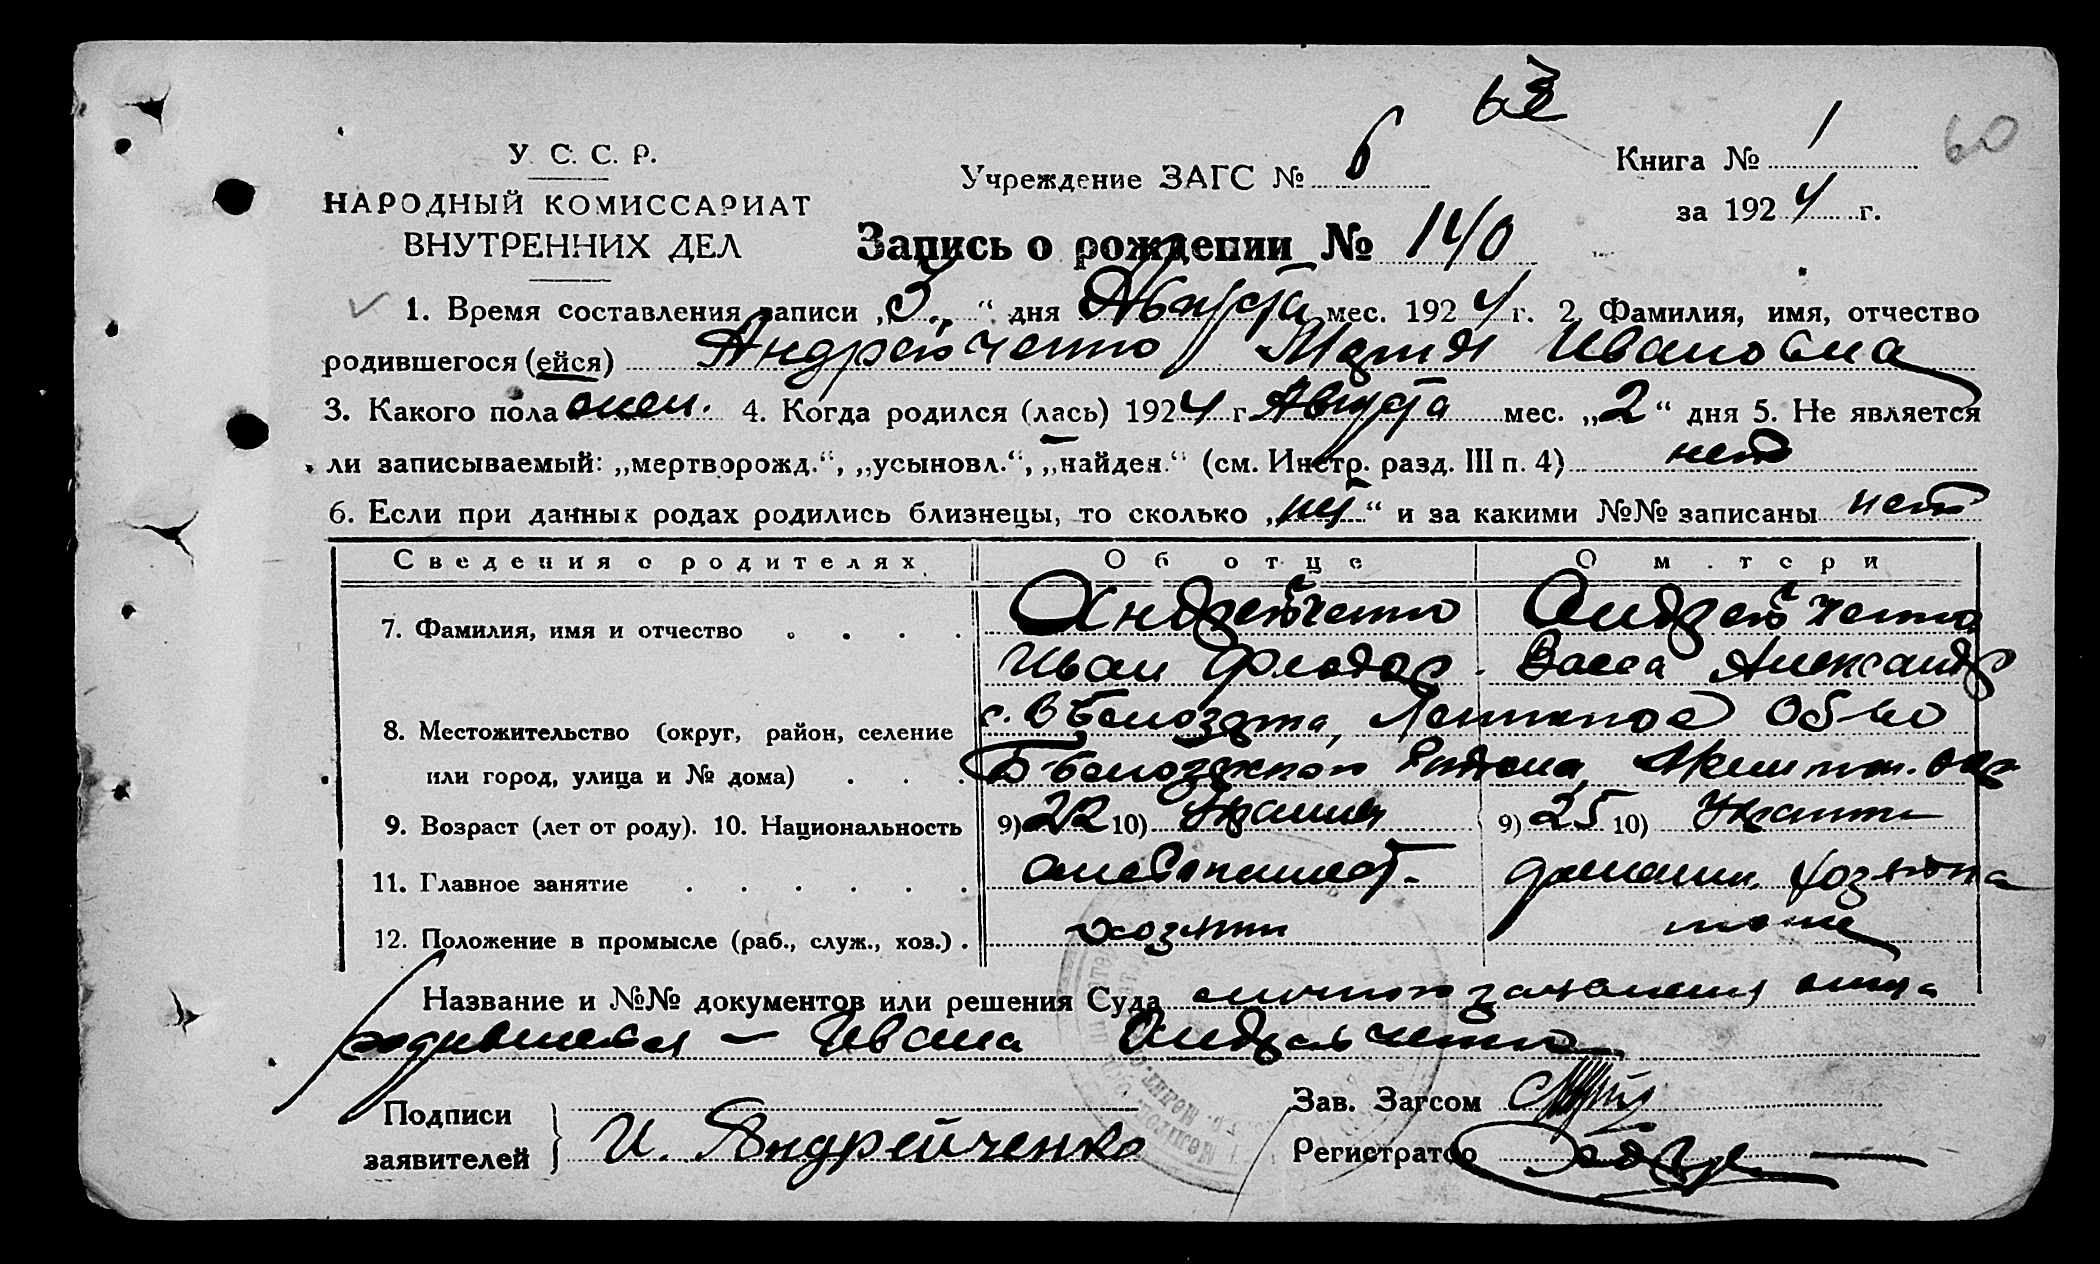 63
60
У. С. С. Р.
НАРОДНЫЙ КОМИССАРИАТ
ВНУТРЕННИХ ДЕЛ
Учреждение ЗАГС № 6
Книга № 1
за 1924 г.
Запись о рождении № 140
1. Время составления записи „3“ дня Августа мес. 1924 г. 2. Фамилия, имя, отчество
родившегося (ейся) Андрейченко Мария Ивановна
3. Какого пола жен. 4. Когда родился (лась) 1924 г. Августа мес. „2“ дня 5. Не является
ли записываемый: „мертворожд.“, „усыновл.“, „найден.“ (см. Инстр. разд. III п. 4) нет
6. Если при данных родах родились близнецы, то сколько „нет“ и за какими №№ записаны нет
Сведения о родителях. Об отце О матери
7. Фамилия, имя и отчество Андрейченко Андрейченко
Иван Федор. Васса Александр
8. Местожительство (округ, район, селение с. В Белозерка,
или город, улица и № дома) Района,
9. Возраст (лет от роду). 10. Национальность 9) 22 10) Украинец 9) 25 10)
11. Главное занятие домашн. хозяйка
12. Положение в промысле (раб., служ., хоз.) хозяин тоже
Название и №№ документов или решения Суда личного заявления отца
родившейся — Ивана Андрейченко
Подписи
заявителей И. Андрейченко
Зав. Загсом
Регистратор